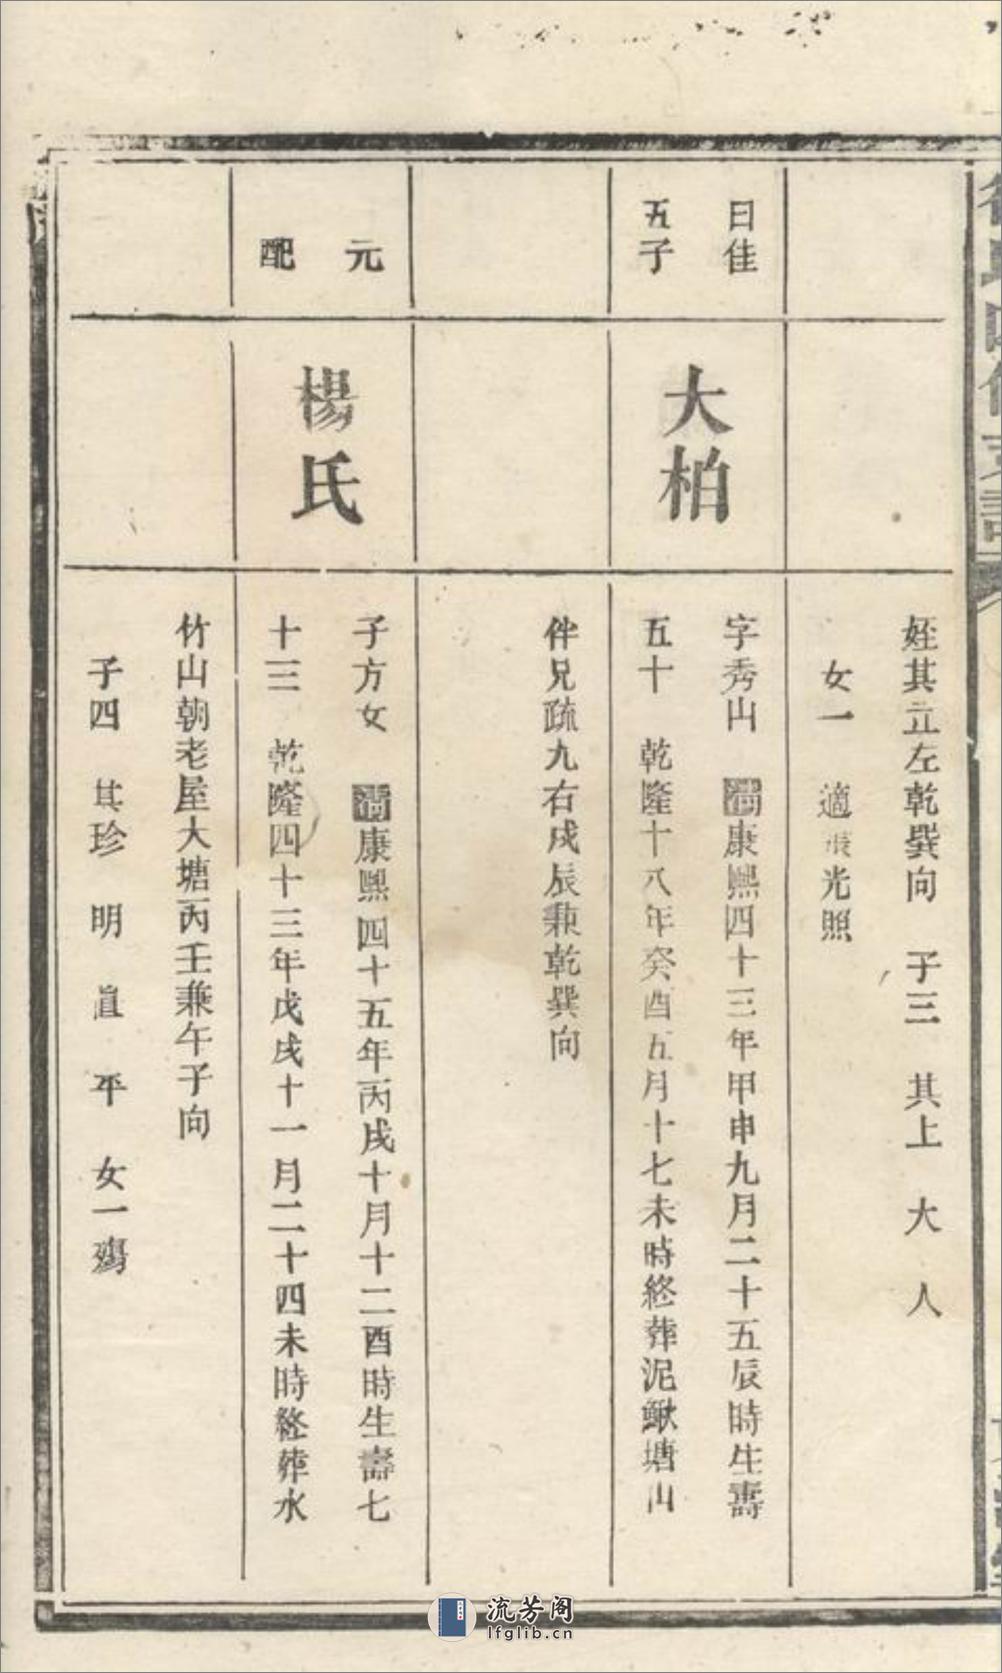 姪其立左乾巽向　子三　其上　大　人
女一　適張光照
日佳
五子
大柏
字秀山　清康熙四十三年甲申九月二十五辰時生壽
五十　乾隆十八年癸酉五月十七未時終葬泥鰍塘山
伴兄疏九右戌辰兼乾巽向
元
配
楊氏
子方女　清康熙四十五年丙戌十月十二酉時生壽七
十三　乾隆四十三年戊戌十一月二十四未時終葬水
竹山朝老屋大塘丙壬兼午子向
子四　其珍　明　直　平　女一殤
流芳阁
lfglib.cn